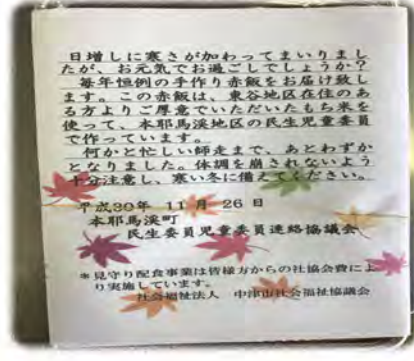 日増しに寒さが加わってまいりまし
たが、お元気でお過ごしでしょうか？
毎年恒例の手作り赤飯をお届け致し
ます。この赤飯は、東谷地区在住のあ
る方よりご厚意でいただいたもち米を
使って、本耶馬渓地区の民生児童委員
で作っています。
何かと忙しい師走まで、あとわずか
となりました。体調を崩されないよう
十分注意し、寒い冬に備えてください。
平成30年 11月 26日
本耶馬渓町
民生委員児童委員連絡協議会
＊見守り配食事業は皆様方からの社協会費によ
り実施しています。
社会福祉法人 中津市社会福祉協議会